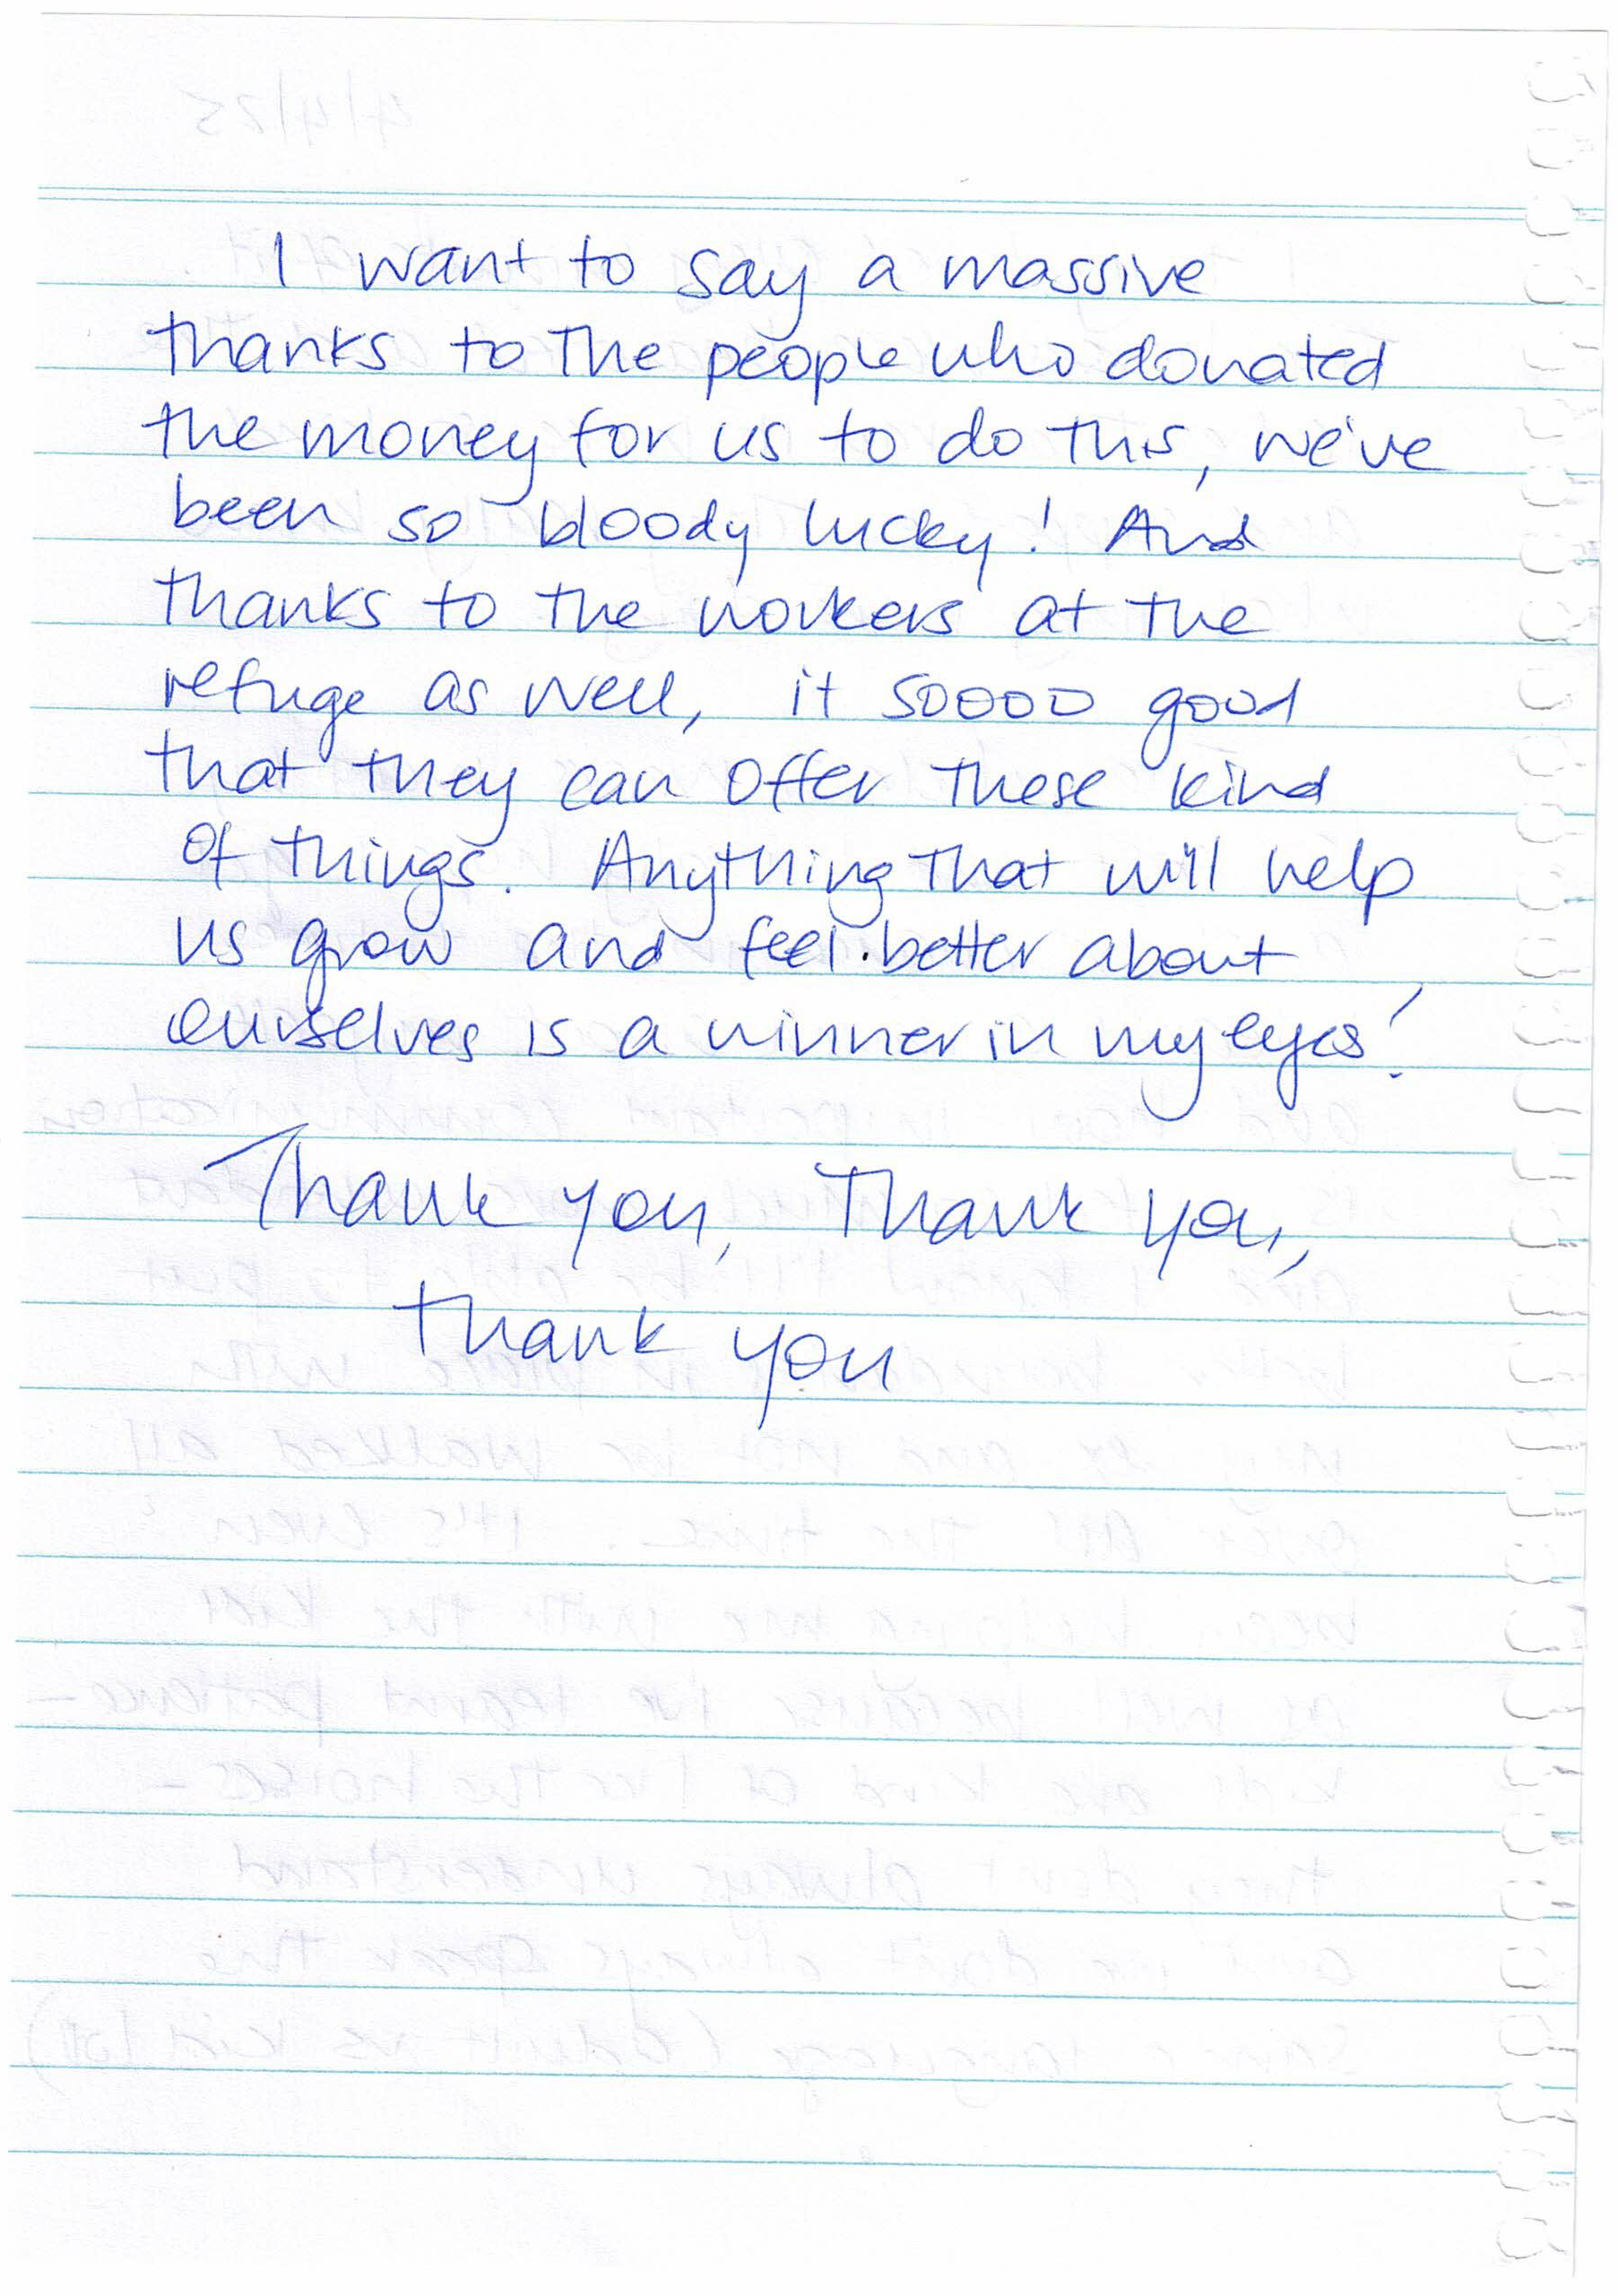 I want to say a massive
thanks to the people who donated
the money for us to do this, we've
been so bloody lucky! And
thanks to the workers at the
refuge as well, it soooo good
that they can offer these kind
of things. Anything that will help
us grow and feel better about
ourselves is a winner in my eyes!
Thank you, Thank you,
thank you